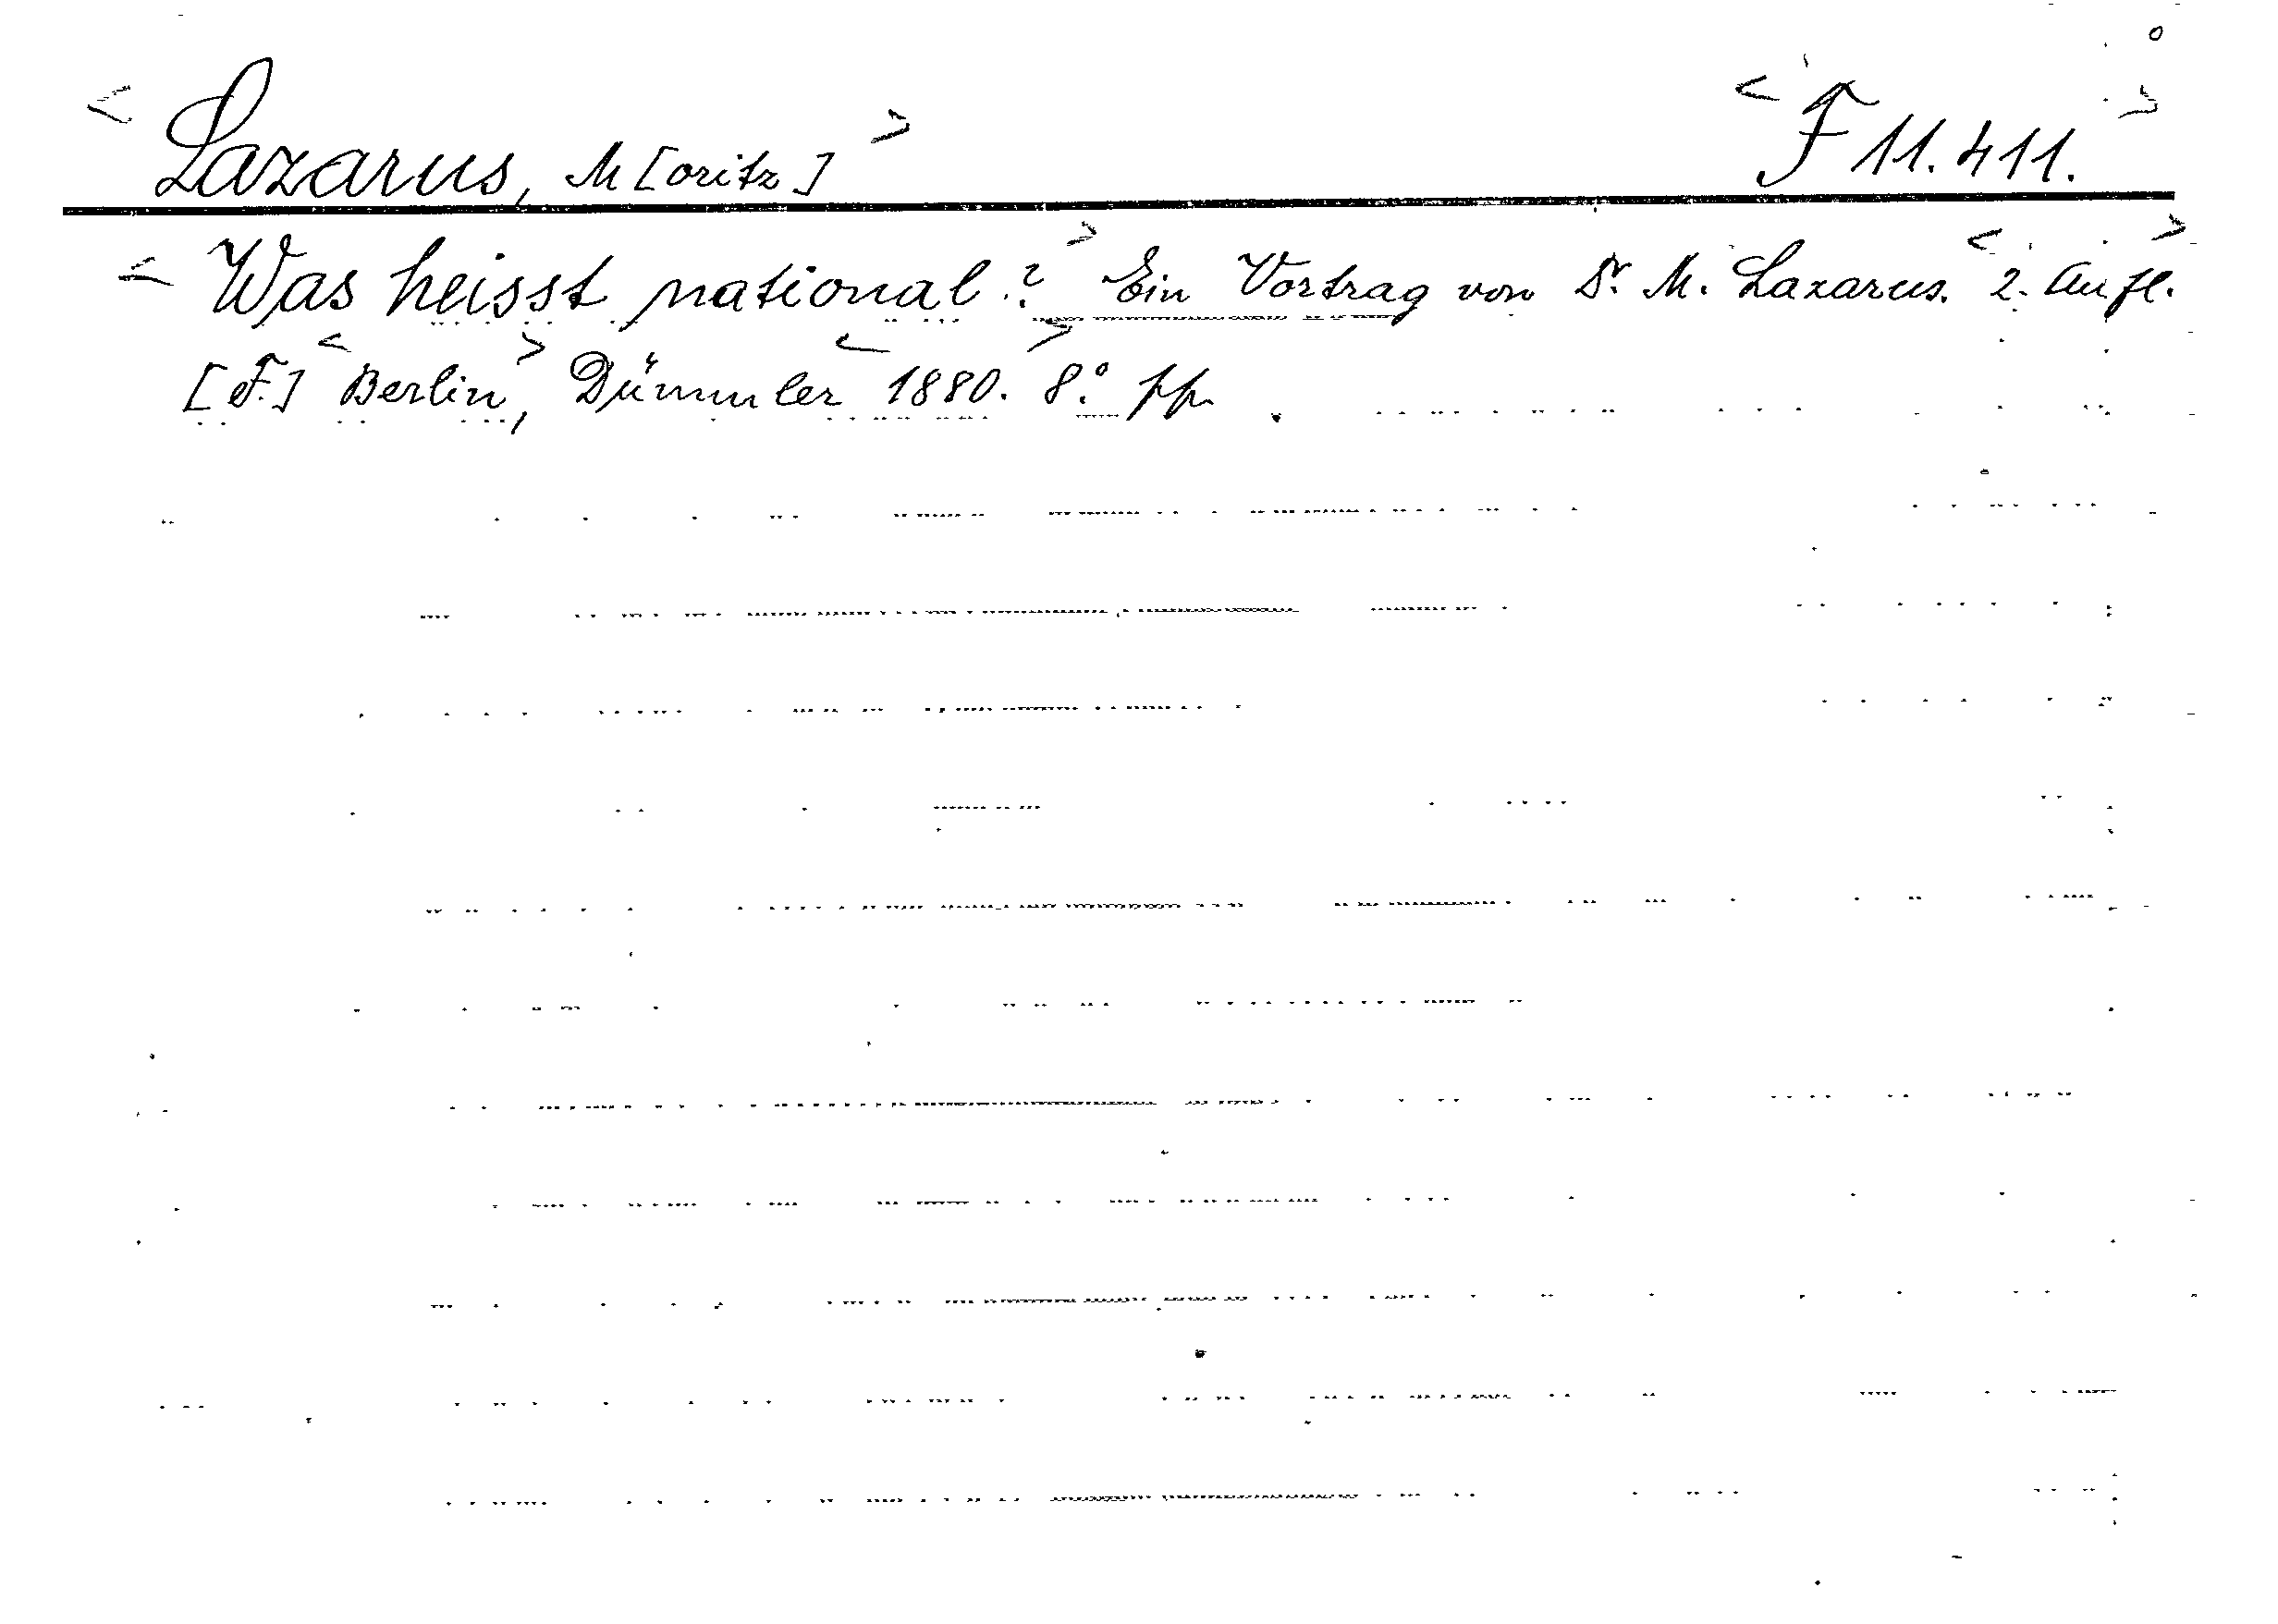 < Lazarus, M[oritz] > < F 11.411. >
< Was heisst national? > Ein Vortrag von Dr. M. Lazarus. < 2. Aufl. >
[F.] < Berlin >, Dümmler < 1880. > 8.° pp.